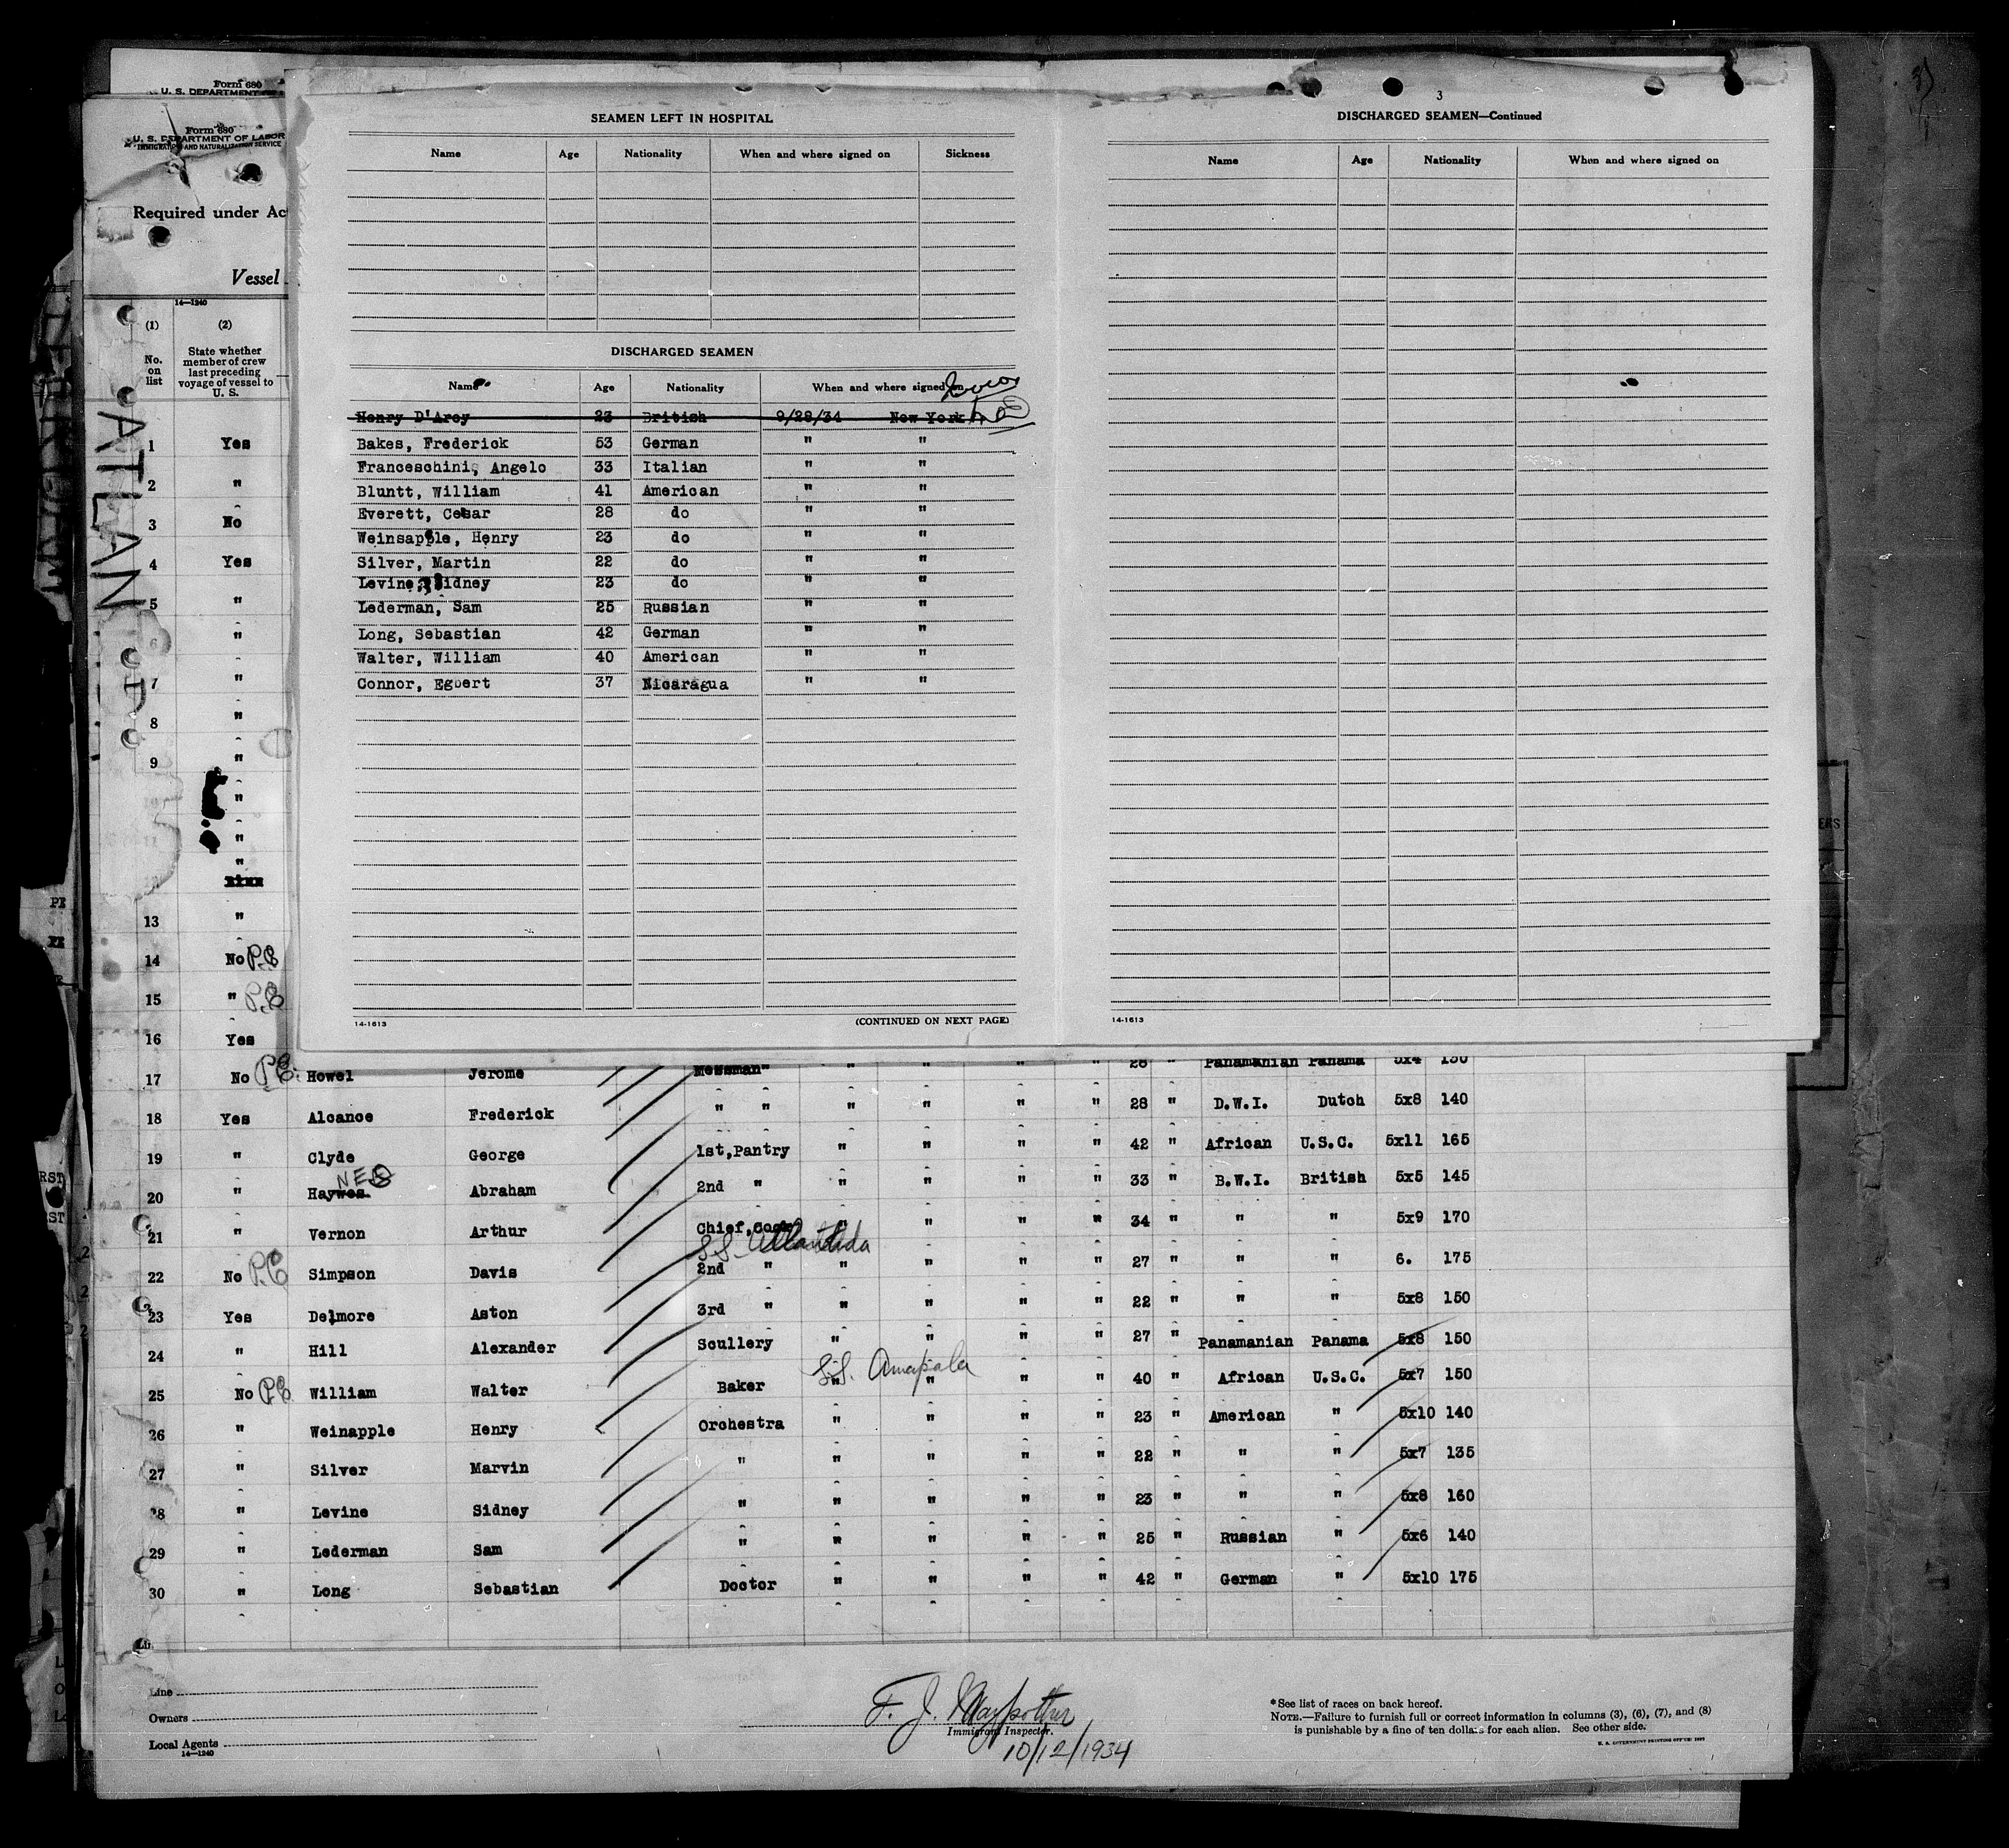 Form 680
U. S. DEPARTMENT
Form 680
U. S. DEPARTMENT OF LABOR
IMMIGRATION AND NATURALIZATION SERVICE
Required under Ac
Vessel
14—1240
(1) (2)
No. on list
State whether member of crew last preceding voyage of vessel to U. S.
ATLAN
SEAMEN LEFT IN HOSPITAL
Name Age Nationality When and where signed on Sickness
DISCHARGED SEAMEN
Name Age Nationality When and where signed on
Henry D'Arcy 23 British 9/28/34 New York
Bakes, Frederick 53 German " "
Franceschini, Angelo 33 Italian " "
Bluntt, William 41 American " "
Everett, Cesar 28 do " "
Weinsapple, Henry 23 do " "
Silver, Martin 22 do " "
Levine, Sidney 23 do " "
Lederman, Sam 25 Russian " "
Long, Sebastian 42 German " "
Walter, William 40 American " "
Connor, Egbert 37 Nicaragua " "
14-1613
(CONTINUED ON NEXT PAGE)
3
DISCHARGED SEAMEN—Continued
Name Age Nationality When and where signed on
14-1613
1 Yes
2 "
3 No
4 Yes
5 "
6 "
7 "
8 "
9 "
"
"
"
13 "
14 No P.E
15 " P.E
16 Yes
28 " Panamanian Panama 5x4 130
17 No P.E. Howel Jerome Messman" " " " "
18 Yes Alcance Frederick " " " " " " 28 " D.W.I. Dutch 5x8 140
19 " Clyde George 1st,Pantry " " " " 42 " African U.S.C. 5x11 165
NES
20 " Haywes Abraham 2nd " " " " " 33 " B.W.I. British 5x5 145
21 " Vernon Arthur Chief,Cook " " " " 34 " " " 5x9 170
S.S. Atlantida
22 No P.E Simpson Davis 2nd " " " " " 27 " " " 6. 175
23 Yes Delmore Aston 3rd " " " " " 22 " " " 5x8 150
24 " Hill Alexander Scullery " " " " 27 " Panamanian Panama 5x8 150
S.S. Amapala
25 No P.E William Walter Baker " " " " 40 " African U.S.C. 5x7 150
26 " Weinapple Henry Orchestra " " " " 23 " American " 5x10 140
27 " Silver Marvin " " " " " 22 " " " 5x7 135
28 " Levine Sidney " " " " " 23 " " " 5x8 160
29 " Lederman Sam " " " " " 25 " Russian " 5x6 140
30 " Long Sebastian Doctor " " " " 42 " German " 5x10 175
Line
Owners
Local Agents
14—1240
Immigrant Inspector.
10/12/1934
*See list of races on back hereof.
NOTE.—Failure to furnish full or correct information in columns (3), (6), (7), and (8)
is punishable by a fine of ten dollars for each alien. See other side.